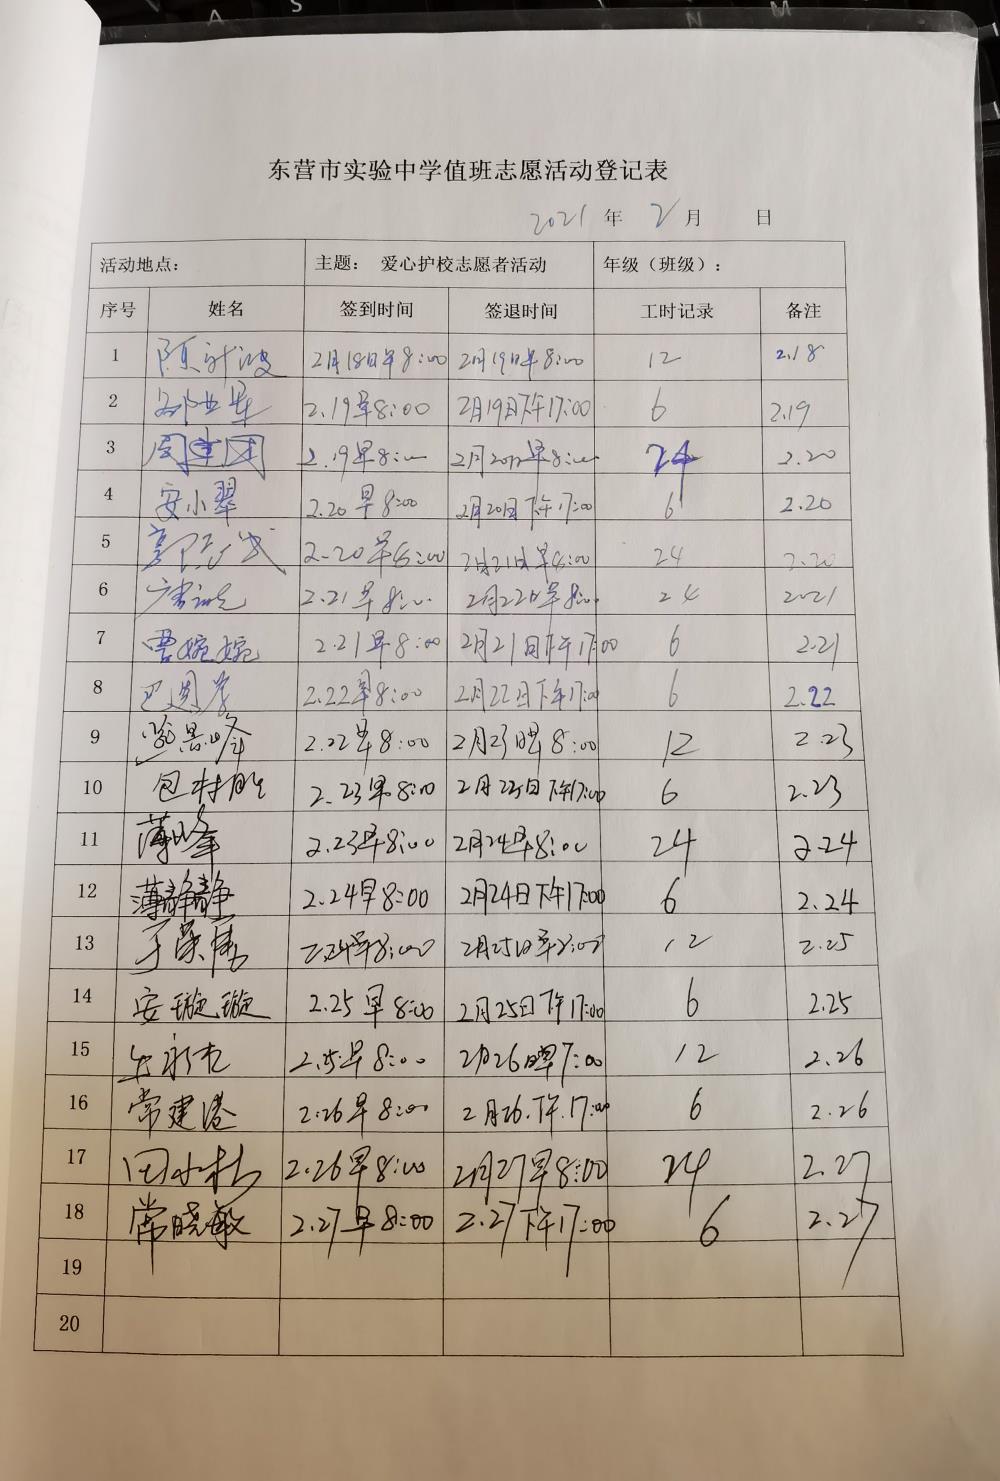 东营市实验中学值班志愿活动登记表
2021 年 2 月 日
活动地点: 主题: 爱心护校志愿者活动 年级(班级):
序号 姓名 签到时间 签退时间 工时记录 备注
1 2月18日早8:00 2月19日早8:00 12 2.18
2 2.19早8:00 2月19日下午17:00 6 2.19
3 2.19早8:00 早8:00 24 2.20
4 安小翠 2.20早8:00 2月20日下午17:00 6 2.20
5 2.20早8:00 2月21日早8:00 24 2.20
6 2.21早8:00 2月22日早8:00 24 2021
7 婉婉 2.21早8:00 2月21日下午17:00 6 2.21
8 2.22早8:00 2月22日下午17:00 6 2.22
9 2.22早8:00 2月23日早8:00 12 2.23
10 2.23早8:00 2月23日下午17:00 6 2.23
11 薄峰 2.23早8:00 2月24早8:00 24 2.24
12 薄静静 2.24早8:00 2月24日下午17:00 6 2.24
13 2.24早8:00 2月25日早8:00 12 2.25
14 安璇璇 2.25早8:00 2月25日下午17:00 6 2.25
15 早8:00 2月26日 7:00 12 2.26
16 常建港 2.26早8:00 2月26.下午.17:00 6 2.26
17 2.26早8:00 2月27早8:00 24 2.27
18 常晓敏 2.27早8:00 2.27下午17:00 6 2.27
19
20